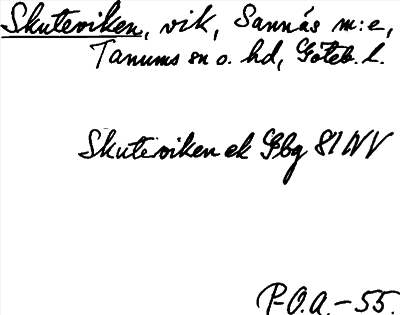 Skuteviken, vik, Sannäs m:e,
Tanums sn o. hd, Göteb. l.
Skuteviken ek Gbg 81 NV
P-O.A. - 55.